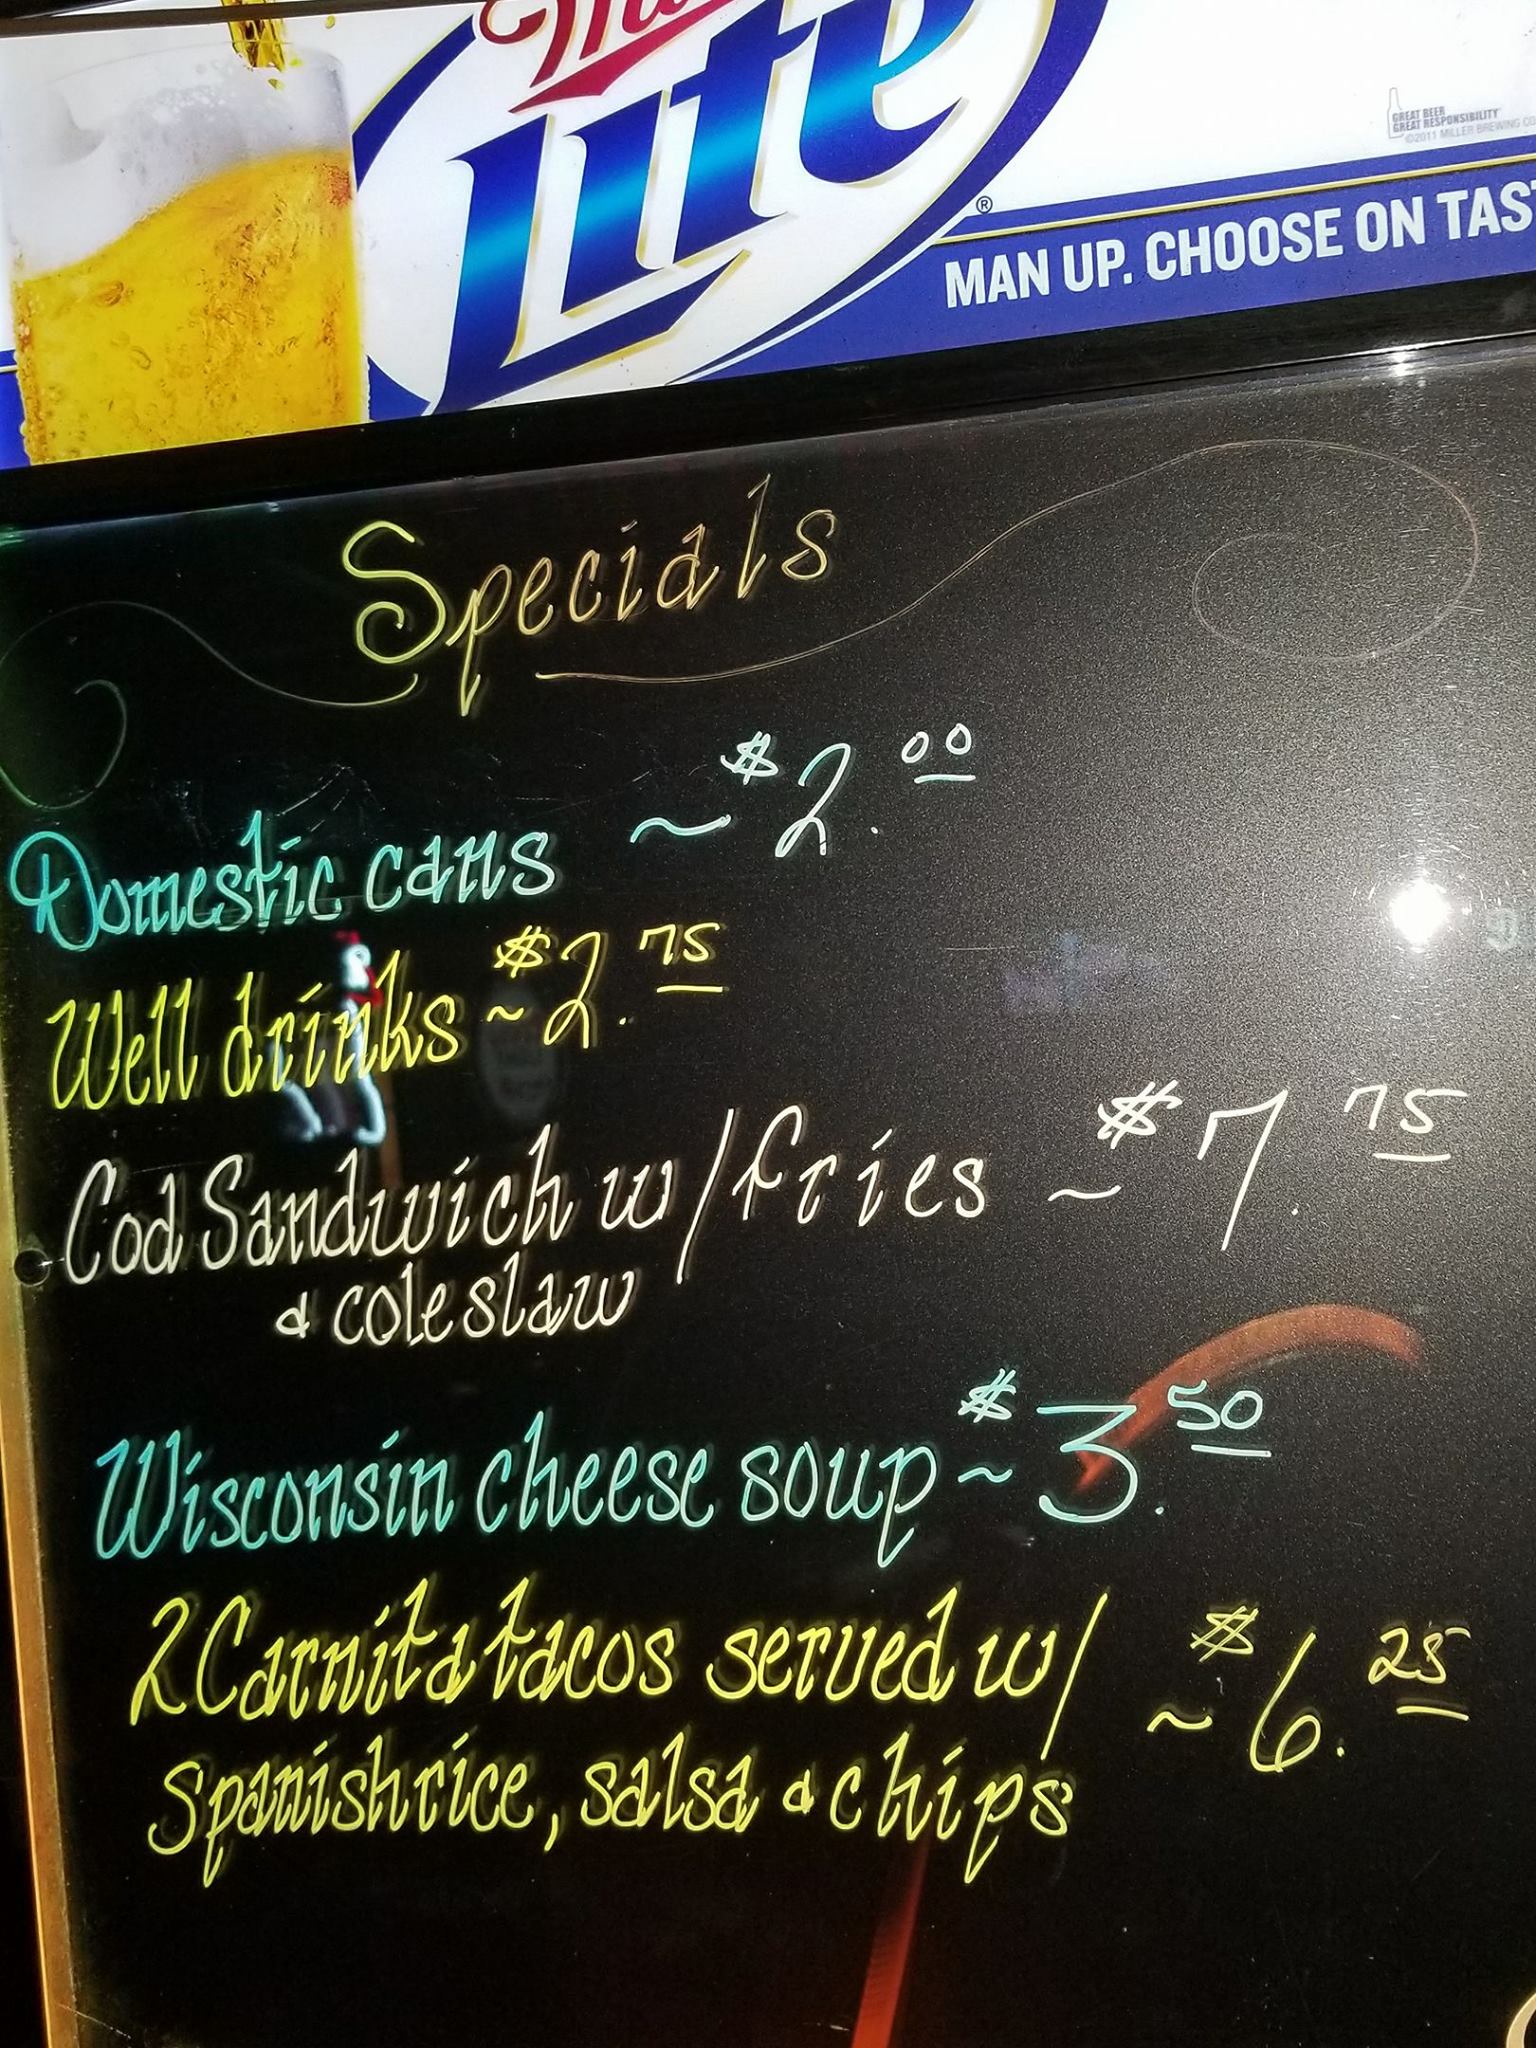 Lite
®
GREAT BEER
GREAT RESPONSIBILITY
©2011 MILLER BREWING CO
MAN UP. CHOOSE ON TAS
Specials
Domestic cans ~ $2.00
Well drinks ~ $2.75
Cod Sandwich w/ fries ~ $7.75
& coleslaw
Wisconsin cheese soup ~ $3.50
2 Carnita tacos served w/ ~ $6.25
Spanish rice, salsa & chips